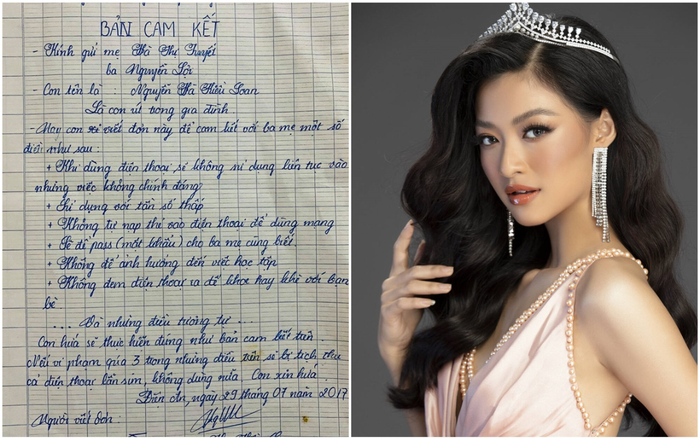 BẢN CAM KẾT
- Kính gửi mẹ Hà Thị Tuyết
ba Nguyễn Lợi
- Con tên là : Nguyễn Hà Kiều Loan
Là con út trong gia đình.
- Nay con xi viết đơn này để cam kết với ba mẹ một số
điều như sau :
+ Khi dùng điện thoại sẽ không sử dụng liên tục vào
những việc không chính đáng
+ Sử dụng với tần số thấp
+ Không tự nạp thẻ vào điện thoại để dùng mạng
+ Sẽ để pass (mật khẩu) cho ba mẹ cùng biết.
+ Không để ảnh hưởng đến việc học tập
+ Không đem điện thoại ra để khoe hay khè với bạn
bè
... Và những điều tương tự ...
Con hứa sẽ thực hiện đúng như bản cam kết trên
Nếu vi phạm quá 3 trong những điều trên sẽ bị tịch thu
cả điện thoại lẫn sim, không dùng nữa. Con xin hứa
Điện An, ngày 29 tháng 07 năm 2017
Người viết đơn :